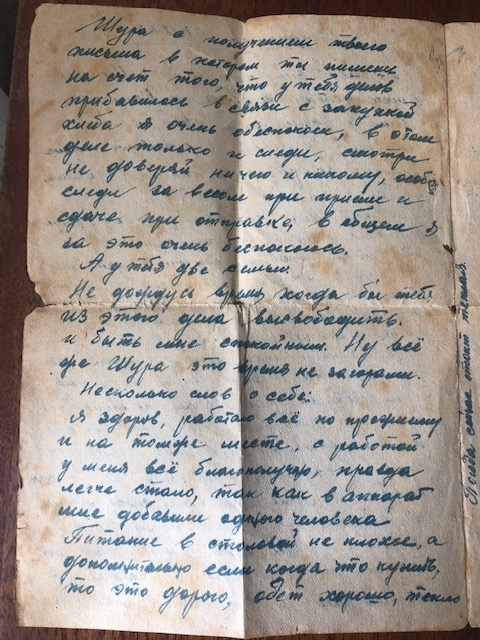 Шура с получением твоего
письма в котором ты пишешь
на счет того, что у тебя дела
прибавилось в связи с закупкой
хлеба я очень обеспокоен, в этом
деле только и следи, смотри
не доверяй ничего и никому, особо
следи за весом при приеме и
сдаче при отправке, в общем я
за это очень беспокоюсь.
А у тебя две семьи.
Не дождусь время когда бы тебя
из этого дела высвободить
и быть мне спокойным. Ну всё
же Шура это время не загорами.
Несколько слов о себе:
Я здоров, работаю всё по прежнему
и на томже месте, с работой
у меня всё благополучно, правда
легче стало, так как в аппарат
мне добавили одного человека
Питание в столовой не плохое, а
дополнительно если когда что купить,
то это дорого, одет хорошо, тепло
Погода сейчас стоит теплая